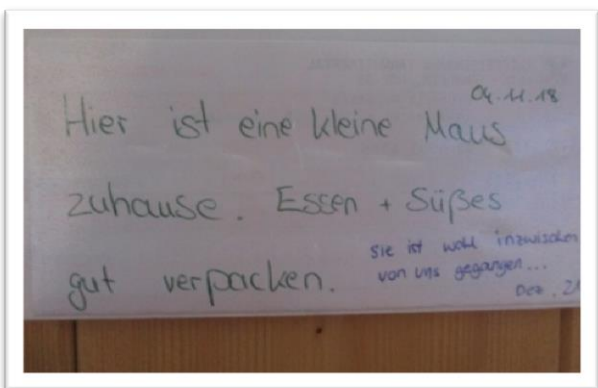 04.11.18
Hier ist eine kleine Maus
zuhause. Essen + Süßes
gut verpacken.
sie ist wohl inzwischen
von uns gegangen...
Dez.